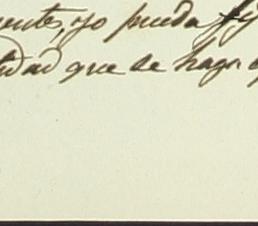 uente, yo pueda fij
tidad que se haga e